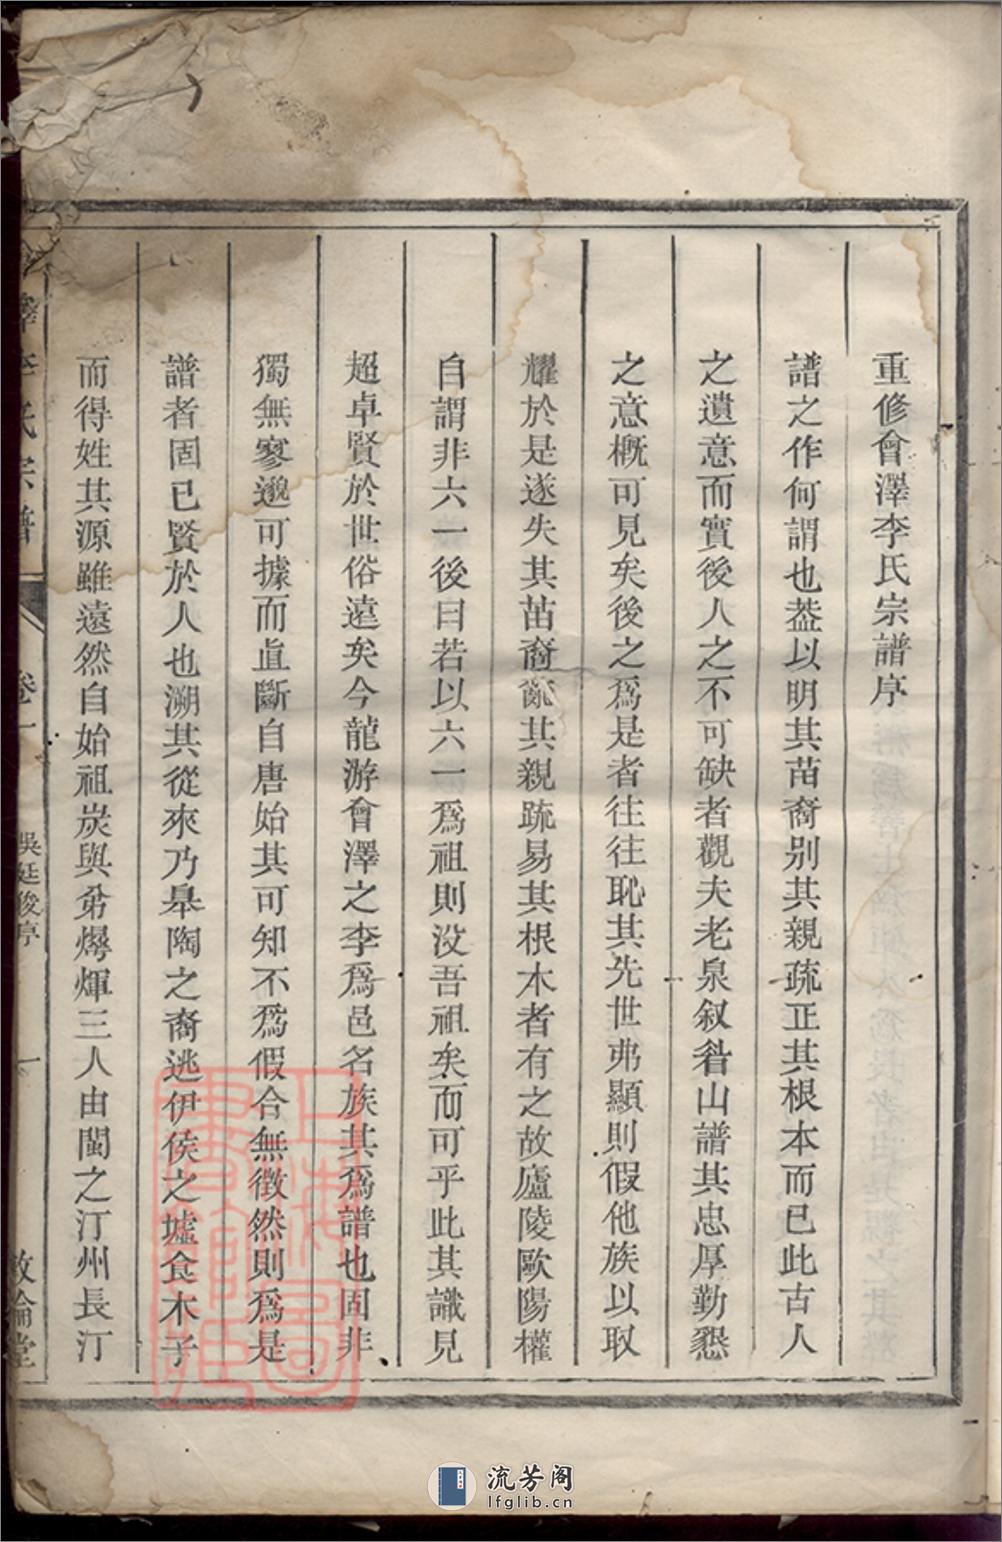 重修會澤李氏宗譜序
譜之作何謂也葢以明其苗裔别其親疏正其根本而已此古人
之遺意而實後人之不可缺者觀夫老泉叙眉山譜其忠厚勤懇
之意概可見矣後之爲是者往往恥其先世弗顯則假他族以取
耀於是遂失其苗裔亂其親疏易其根木者有之故廬陵歐陽權
自謂非六一後曰若以六一爲祖則没吾祖矣而可乎此其識見
超卓賢於世俗遠矣今龍游會澤之李爲邑名族其爲譜也固非
獨無寥邈可據而直斷自唐始其可知不爲假合無徴然則爲是
譜者固已賢於人也溯其從來乃皋陶之裔逃伊侯之墟食木子
而得姓其源雖遠然自始祖炭與弟燡煇三人由閩之汀州長汀
澤李氏宗譜 卷一 吳廷俊序 一 敘倫堂
上海圖書館藏
流芳阁
lfglib.cn